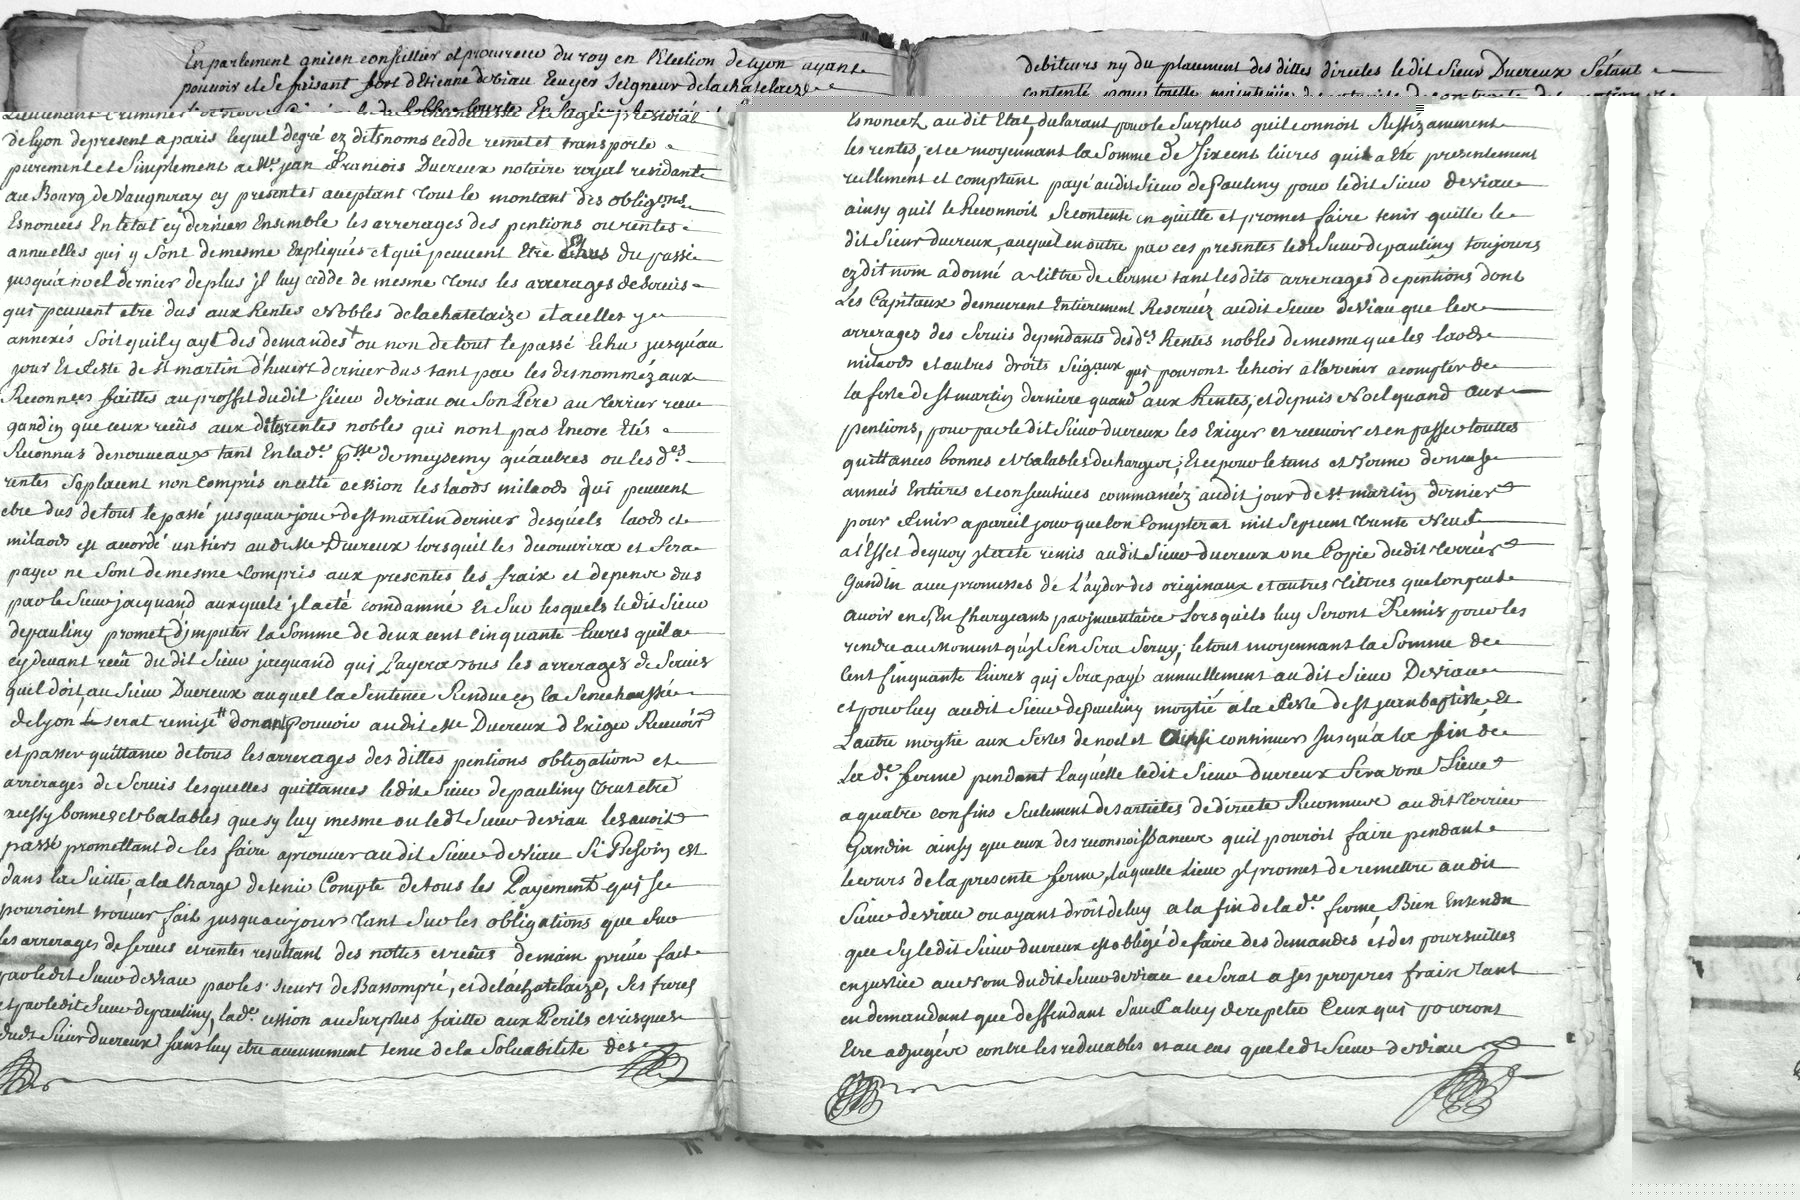 En parlement ancien conseillier et procureur du roy en l'Election de lyon ayant
pouvoir et se faisant fort d'Etienne deviau Ecuyer Seigneur de la chatelaize
Lieutenant Criminel de robe courte En la Sen presidial
de lyon de present a paris lequel de gré ez dits noms cedde remet et transporte
purement et Simplement a Me jean François Ducreux notaire royal residant
au Bourg de Vaugneray cy present et aceptant tout le montant des obligons
Esnoncees En letat cy dernier Ensemble les arrerages des pentions ou rentes
annuelles qui y Sont de mesme Expliqués et qui peuvent Etre Ehus du passé
jusqu'a noel dernier de plus jl luy cedde de mesme tous les arrerages de servis
qui peuvent etre dus aux Rentes Nobles de la chatelaize et a celles y
annexés Soit quil y ayt des demandes ou non de tout le passé Echu jusqu'au
jour Et feste de st martin d'hivert dernier dus tant par les desnommez aux
Reconnces faittes au proffit du dit sieur deviau ou Son Pere au terrier receu
gandin que ceux reeus aux dites rentes nobles qui nont pas Encore Etés
Reconnus de nouveaux tant En lad.e psse de meysemy qu'autres ou les d.es
rentes Seplacent non compris en cette cession les laods milaods qui peuvent
etre dus de tout le passé jusquau jour de st martin dernier desquels laods et
milaods est acordé un tiers audit Me Ducreux lorsquil les decouvrira et Sera
payer ne Sont de mesme Compris aux presentes les fraix et depence dus
par le Sieur jacquand auxquels jl a eté comdamné Et Sur lesquels le dit Sieur
depauliny promet d'jmputer la Somme de deux cent cinquante livres quil a
cy devant receu du dit Sieur jacquand qui Payera tous les arrerages de Servis
quil doit au Sieur Ducreux auquel la Sentence Rendue en la Senechaussée
de lyon serat remise donant pouvoir audit Me Ducreux d'Exiger Recevoir
et passer quittance de tous les arrerages des dittes pentions obligations et
arrerages de Servis lesquelles quittances ledit Sieur depauliny veut etre
aussy bonnes et valables que sy luy mesme ou le dt Sieur deviau les avoit
passé promettant de les faire aprouver au dit Sieur deviau Si Besoin est
dans la Suitte, a la Charge de tenir Compte de tous les Payement qui se
pouroient trouver fait jusqu au jour tant Sur les obligations que Sur
les arrerages de servis et rentes resultant des nottes et receus de main privé fait
par ledit Sieur deviau par les sieurs de Bassompré, et de la chatelaize, Ses freres
et par ledit Sieur depauliny, lad.e cession au Surplus faitte aux Perils et risques
du dt Sieur ducreux sans luy etre aucunement tenu de la Soluabilité des
debiteurs ny du placement des dittes directes le dit Sieur Ducreux S'étant
contenté pour toutte
Esnoncez au dit Etat, declarant pour le Surplus quil connoit Suffizamment
les rentes, et ce moyennant la Somme de Six cent livres quil a Eté presentement
reellement et comptant payé au dit Sieur de Pauliny pour le dit Sieur deviau
ainsy quil le Reconnoit Se contente en quitte et promet faire tenir quitte le
dit Sieur ducreux auquel en outre par ces presentes ledt Sieur depauliny toujours
ez dit nom a donné a tiltre de ferme tant les dits arrerages de pentions dont
Les Capitaux demeurent Entierement Reservéz au dit Sieur deviau que les
arrerages des Servis dependants desd.es Rentes nobles de mesme que les laods
milaods et autres droits Seigaux qui pouront Echeoir a l'avenir a compter de
la feste de st martin derniere quand aux Rentes, et depuis Noel quand aux
pentions, pour par le dit Sieur ducreux les Exiger et recevoir et en passer touttes
quittances bonnes et valables decharger; Et ce pour le tems et terme de neuf
années Entieres et consecutives commancéz au dit jour de st martin dernier
pour finir a pareil jour que lon Compterat mil Septcent trente Neuf
a l'Effet de quoy jl a eté remis au dit Sieur ducreux une Copie du dit terrier
Gandin avec promesses de l'ayder des originaux et autres tittres que lon peut
avoir en S'En Chargeant par jnventaire Lorsquils luy Seront Remis pour les
rendre au Moment qu'jl S'en Sera Servy; le tous moyennant la Somme de
Cent Cinquante livres qui Sera payé annuellement au dit Sieur Deviau
et pour luy au dit Sieur depauliny moytié a la feste de st jean baptiste Et
Lautre moytié aux festes de noel et Ainsi continuer Jusqu'a la fin de
La d.e ferme pendant laquelle ledit Sieur ducreux Fera une Lieve
a quatre confins Seulement des articles de directe Reconnue au dit terrier
Gandin ainsy que ceux des reconnoissances quil pouroit faire pendant
le cours de la presente ferme, laquelle Lieve jl promet de remettre au dit
Sieur deviau ou ayant droit de luy a la fin de la d.e ferme, Bien Entendu
que Sy le dit Sieur ducreux est obligé de faire des demandes et des poursuittes
en justice au nom du dit Sieur deviau ce Serat a Ses propres fraix tant
en demandant que deffendant Sauf a luy de repeter Ceux qui pouront
Etre adjugér contre les redevables et au cas que le dt Sieur deviau